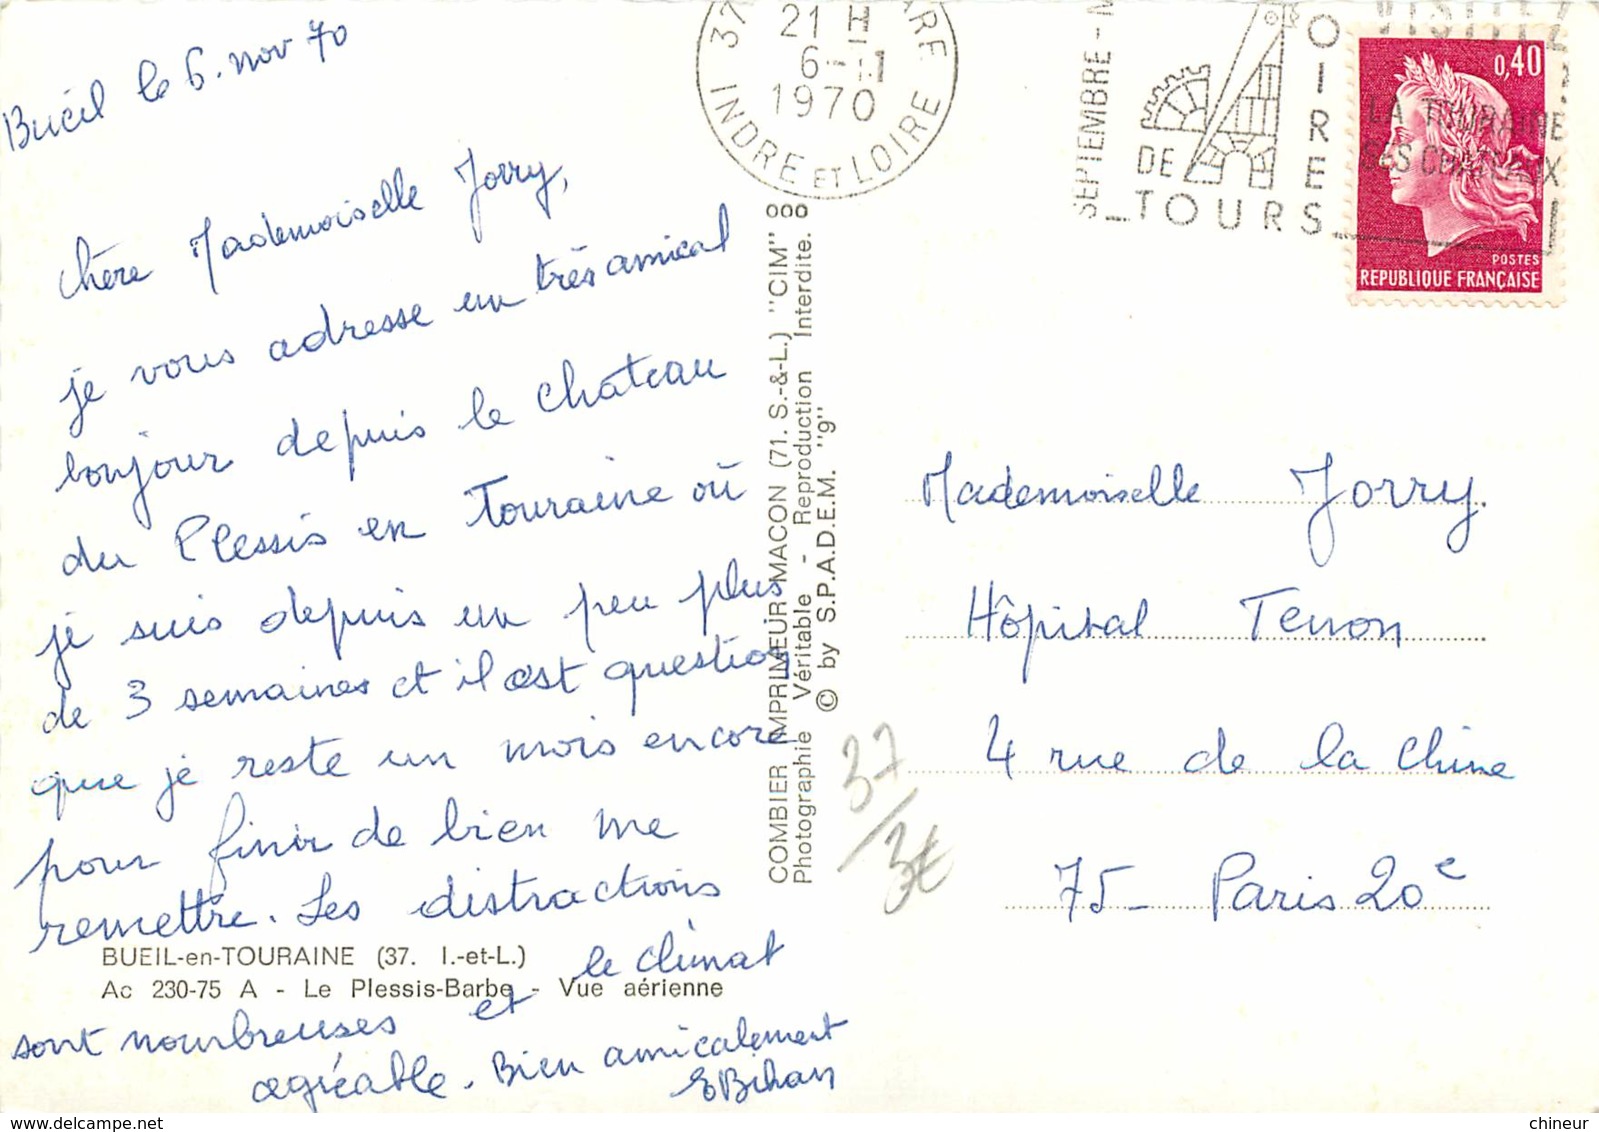 Bueil le 6. nov 70
Chère Mademoiselle Jorry,
je vous adresse un très amical
bonjour depuis le chateau
du Plessis en Touraine où
je suis depuis un peu plus
de 3 semaines et il est question
que je reste un mois encore
pour finir de bien me
remettre. Les distractions
et le climat
sont nombreuses
agréable. Bien amicalement
BUEIL-en-TOURAINE (37. I.-et-L.)
Ac 230-75 A - Le Plessis-Barbe - Vue aérienne
COMBIER IMPRIMEUR MACON (71. S.-&-L.) "CIM"
Photographie Véritable - Reproduction Interdite.
© by S.P.A.D.E.M. "9"
37
21 H
6-11
1970
INDRE ET LOIRE
SEPTEMBRE - M
OIRES
DE
TOURS
VISITEZ
LA TOURAINE
SES CHATEAUX
0,40
POSTES
REPUBLIQUE FRANÇAISE
Mademoiselle Jorry.
Hôpital Tenon
4 rue de la Chine
75 - Paris 20e
37
3€
chineur